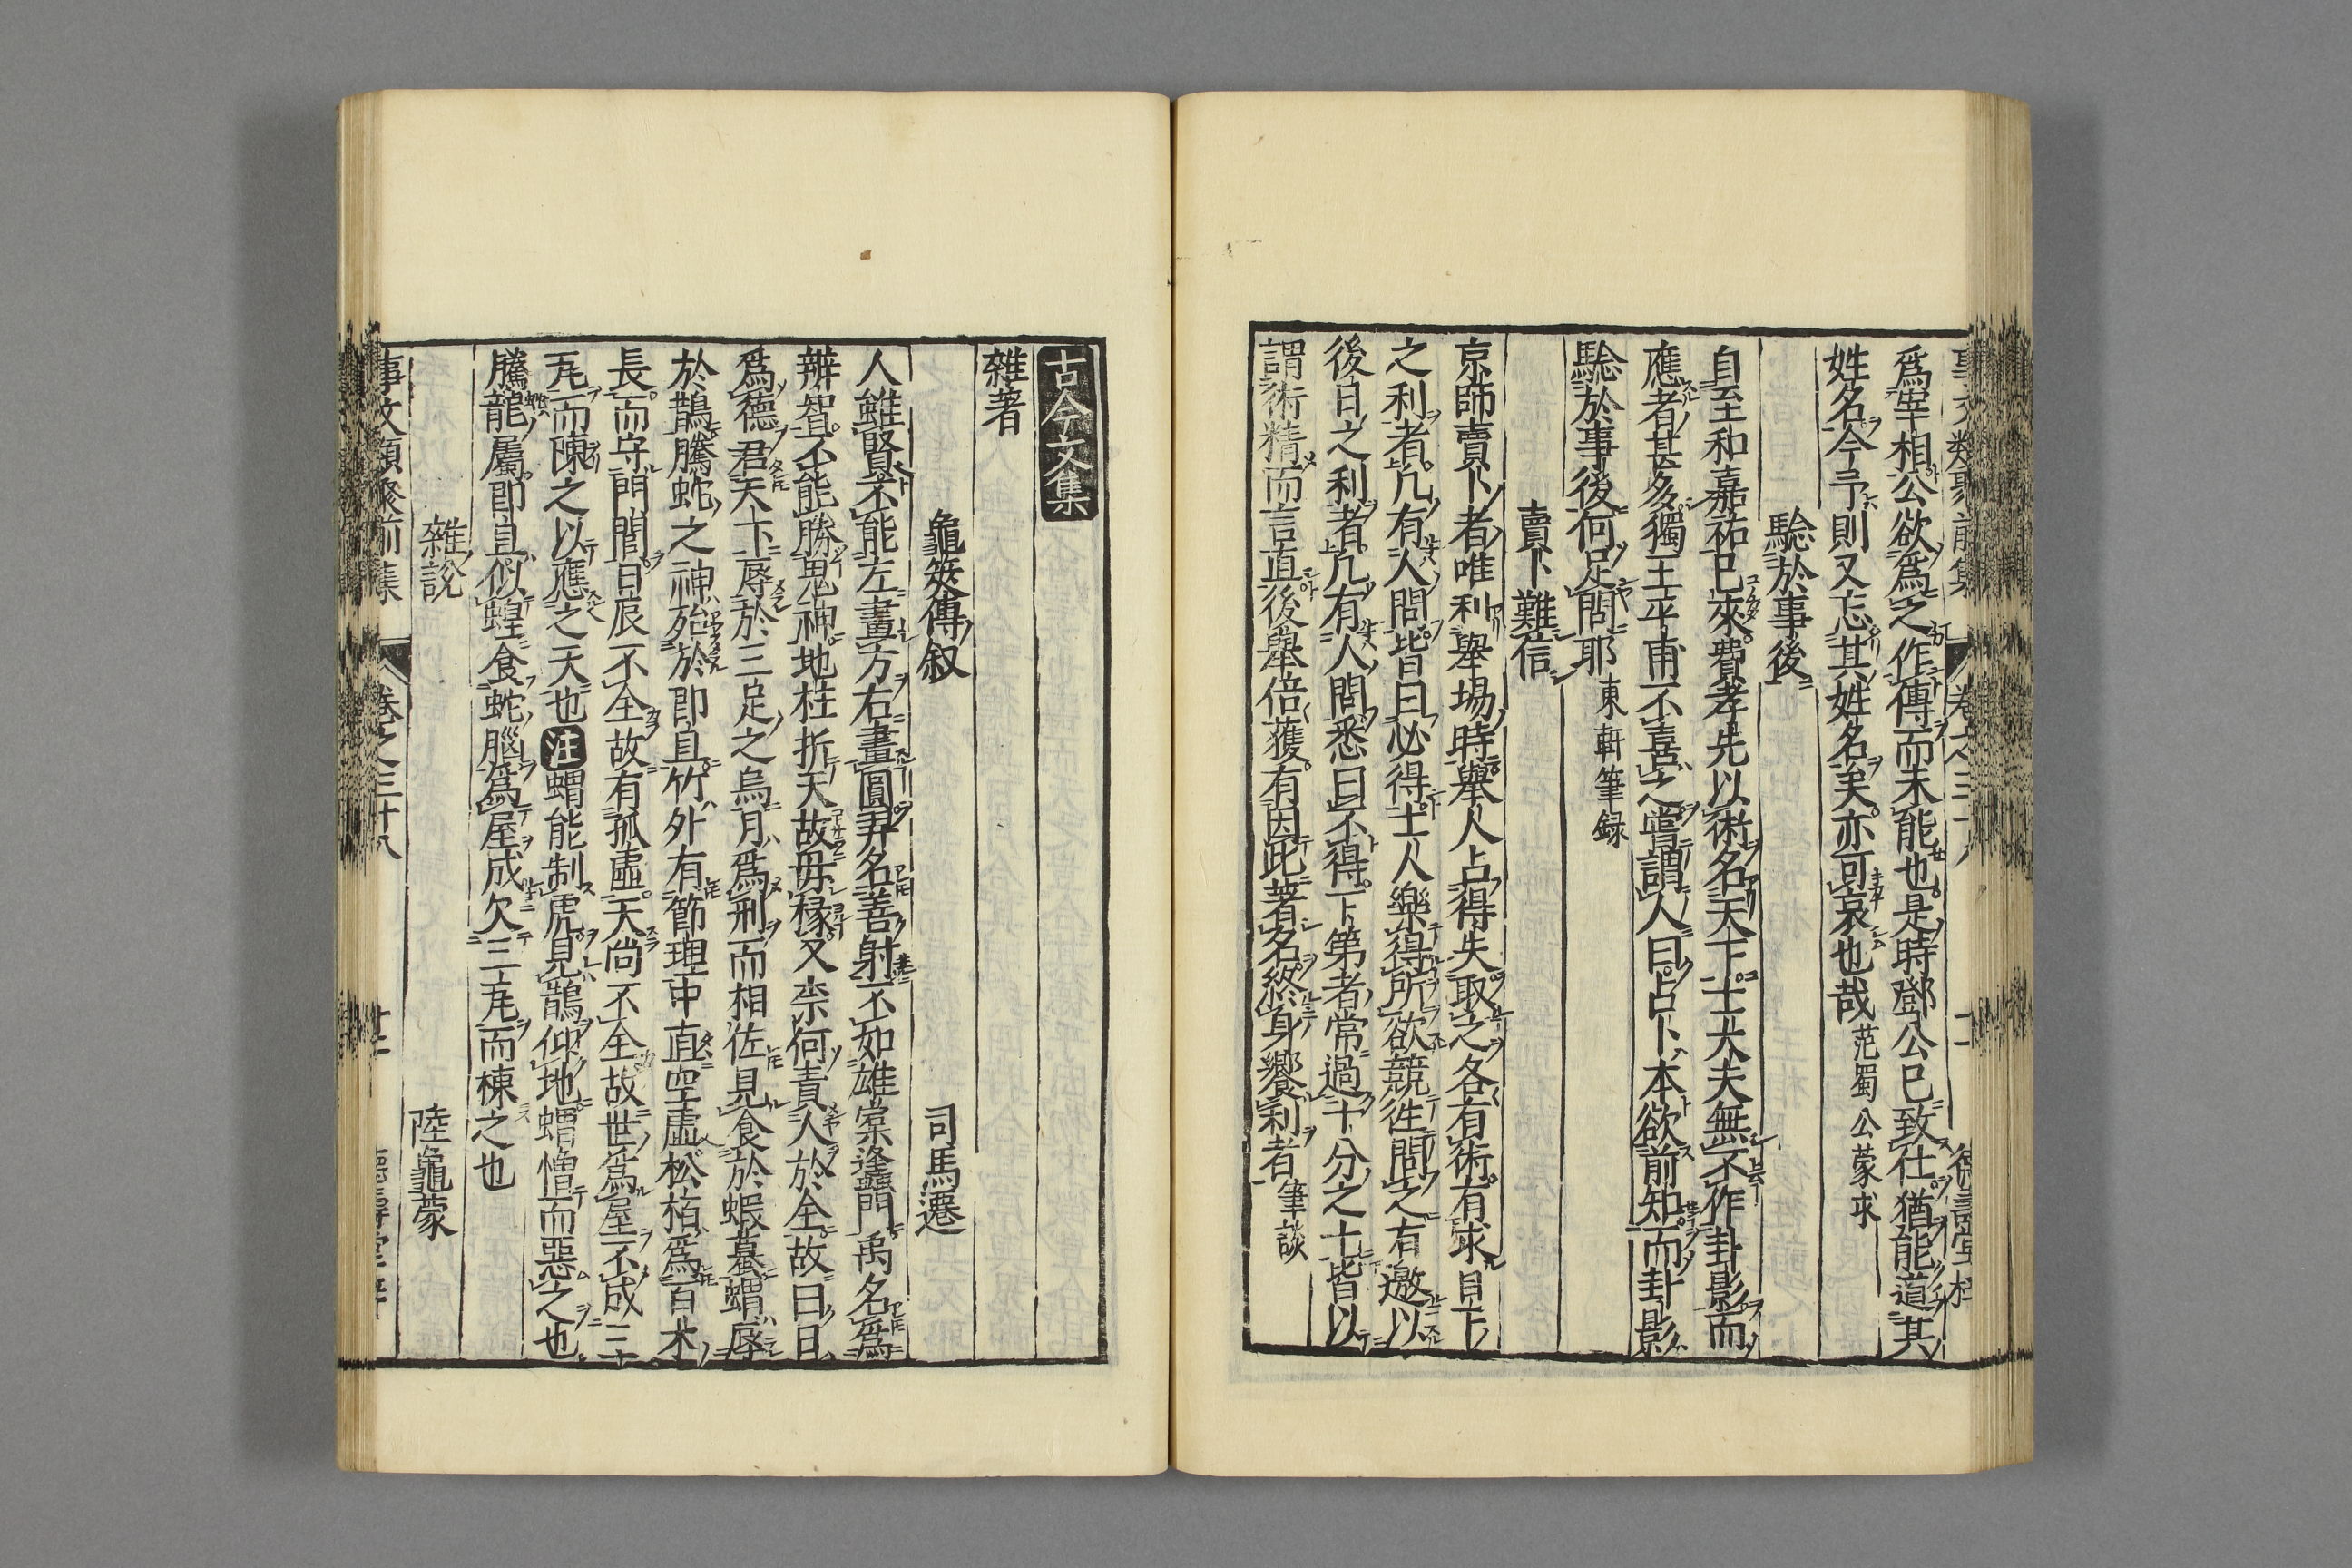 事文類聚前集 卷之三十八 德壽堂梓
爲宰相公欲爲之作傳而未能也是時鄧公已致仕猶能道其
姓名今予則又忘其姓名矣亦可哀也哉 范蜀公蒙求
驗於事後
自至和嘉祐已來費孝先以術名天下士大夫無不作卦影而
應者甚多獨王平甫不喜占之嘗謂人曰占卜本欲前知而卦影
驗於事後何足問耶 東軒筆録
賣卜難信
京師賣卜者唯利舉場時舉人占得失取之各有術有求目下
之利者凡有人問皆曰必得士人樂得所欲競徃問之有邀以
後日之利者凡有人問悉曰不得下第者常過十分之七皆以
謂術精而言直後舉倍獲有因此著名終身饗利者 筆談
古今文集
雜著
龜筴傳叙 司馬遷
人雖賢不能左畫方右畫圓羿名善射不如雄棠逢蠭門禹名爲
辨智不能勝鬼神地柱折天故毋椽又柰何責人於全故曰日
爲德君天下辱於三足之烏月爲刑而相佐見食於蝦蟇蝟辱
於鵲騰蛇之神殆於卽且竹外有節理中直空虛松栢爲百木
長而守門閭日辰不全故有孤虛天尚不全故世爲屋不成三
瓦而陳之以應之天也 注 蝟能制虎見鵲仰地蝟憎而惡之也
騰龍屬卽且似蝗食蛇腦爲屋成欠三瓦而棟之也
雜說 陸龜蒙
事文類聚前集 卷之三十八 十二 德壽堂梓